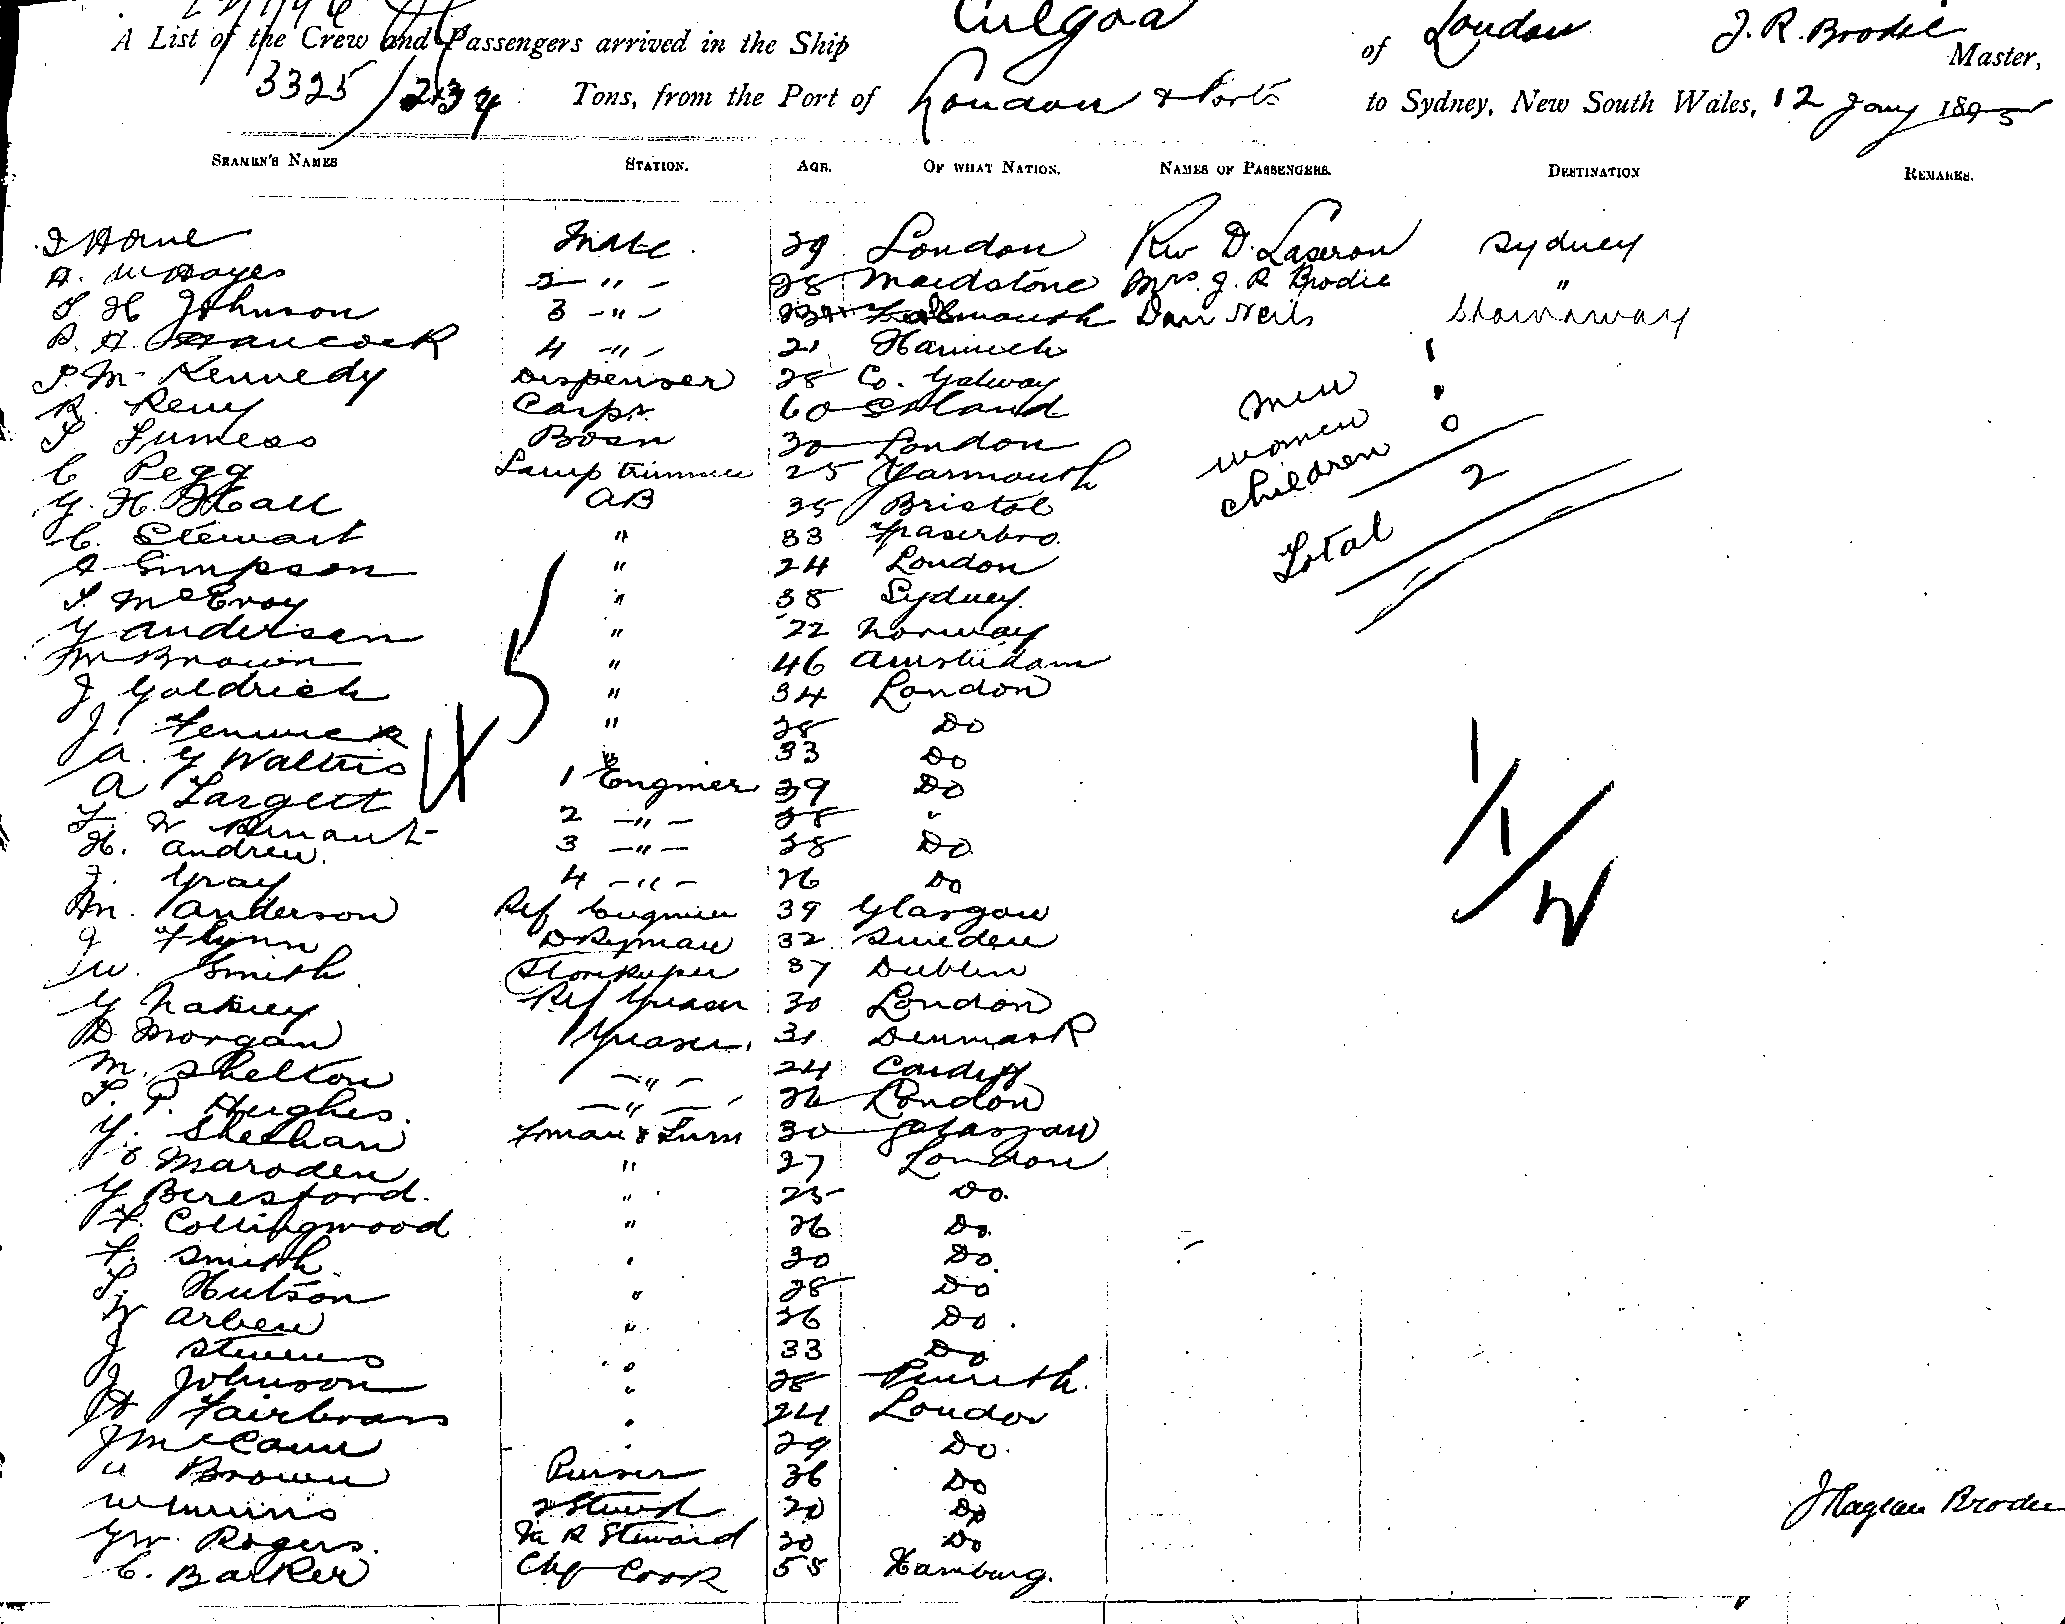 A List of the Crew and Passengers arrived in the Ship Culgoa of London J. R. Brodie Master,
3325 / 234 Tons, from the Port of London & Ports to Sydney, New South Wales, 12 Jany 1895
SEAMEN'S NAMES STATION. AGE. OF WHAT NATION. NAMES OF PASSENGERS. DESTINATION REMARKS.
Mate 29 London Rev D. Laseron Sydney
Hayes 2 " 28 Maidstone Mrs. J. R Brodie "
H Johnson 3 " Falmouth Dan Neils Stowaway
Hancock 4 " 21 Harwich
Kennedy Dispenser 28 Co. Galway
R. Carpr. 60
Bosn 30 London
C Pegg Lamp trimmer 25 Yarmouth
G. H. Hall AB 35 Bristol
C. Stewart " 33 Fraserbro.
A Simpson " 24 London
McEvoy " 38 Sydney
G Andersen " 22 Norway
M Brown " 46 Amsterdam
J Goldrich " 34 London
J. Fenwick " 28 Do
A. G Walters 33 Do
A Largett 1 Engineer 39 Do
2 " 38 "
H. Andrew. 3 " 38 Do
Gray 4 " 26 Do
Anderson Ref Engineer 39 Glasgow
J Flynn Dkyman 32 Sweden
W. Smith Storekeeper 37 Dublin
G Ref Greaser 30 London
D Morgan Greaser. 31 Denmark
M. Shelton " 24 Cardiff
Hughes. " 26 London
G. Sheehan Fman & Trim 30 Glasgow
Marsden " 27 London
G Beresford. " 25 Do.
F. Collingwood " 26 Do.
F. Smith " 30 Do.
Hutson " 28 Do
W Arben " 26 Do.
J Stevens " 33 Do
J Johnson " 28 Penrith.
H Fairbrass " 24 London
J McCann " 29 Do.
Brown Purser 36 Do
2 Steward 20 Do
GW. Rogers. Steward 30 Do
C. Barker Chf Cook 58 Hamburg.
men 1
women 1
children 0
Total 2
J Raglan Brodie